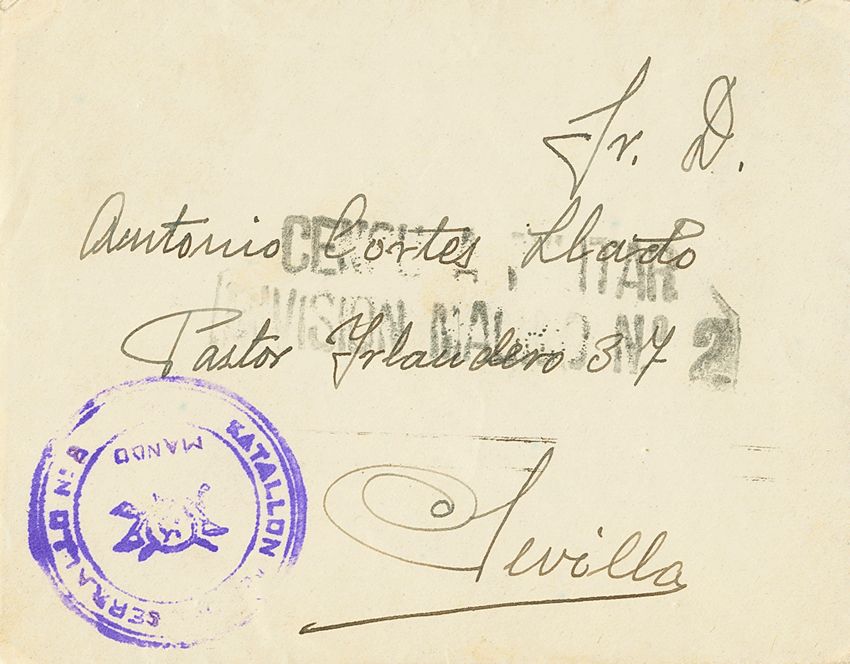 Sr. D.
Antonio Cortes Llado
Pastor Yrlandero 37
Sevilla
CENSURA MILITAR
DIVISION 2
BATALLON
SERRALLO Nº 8
MANDO